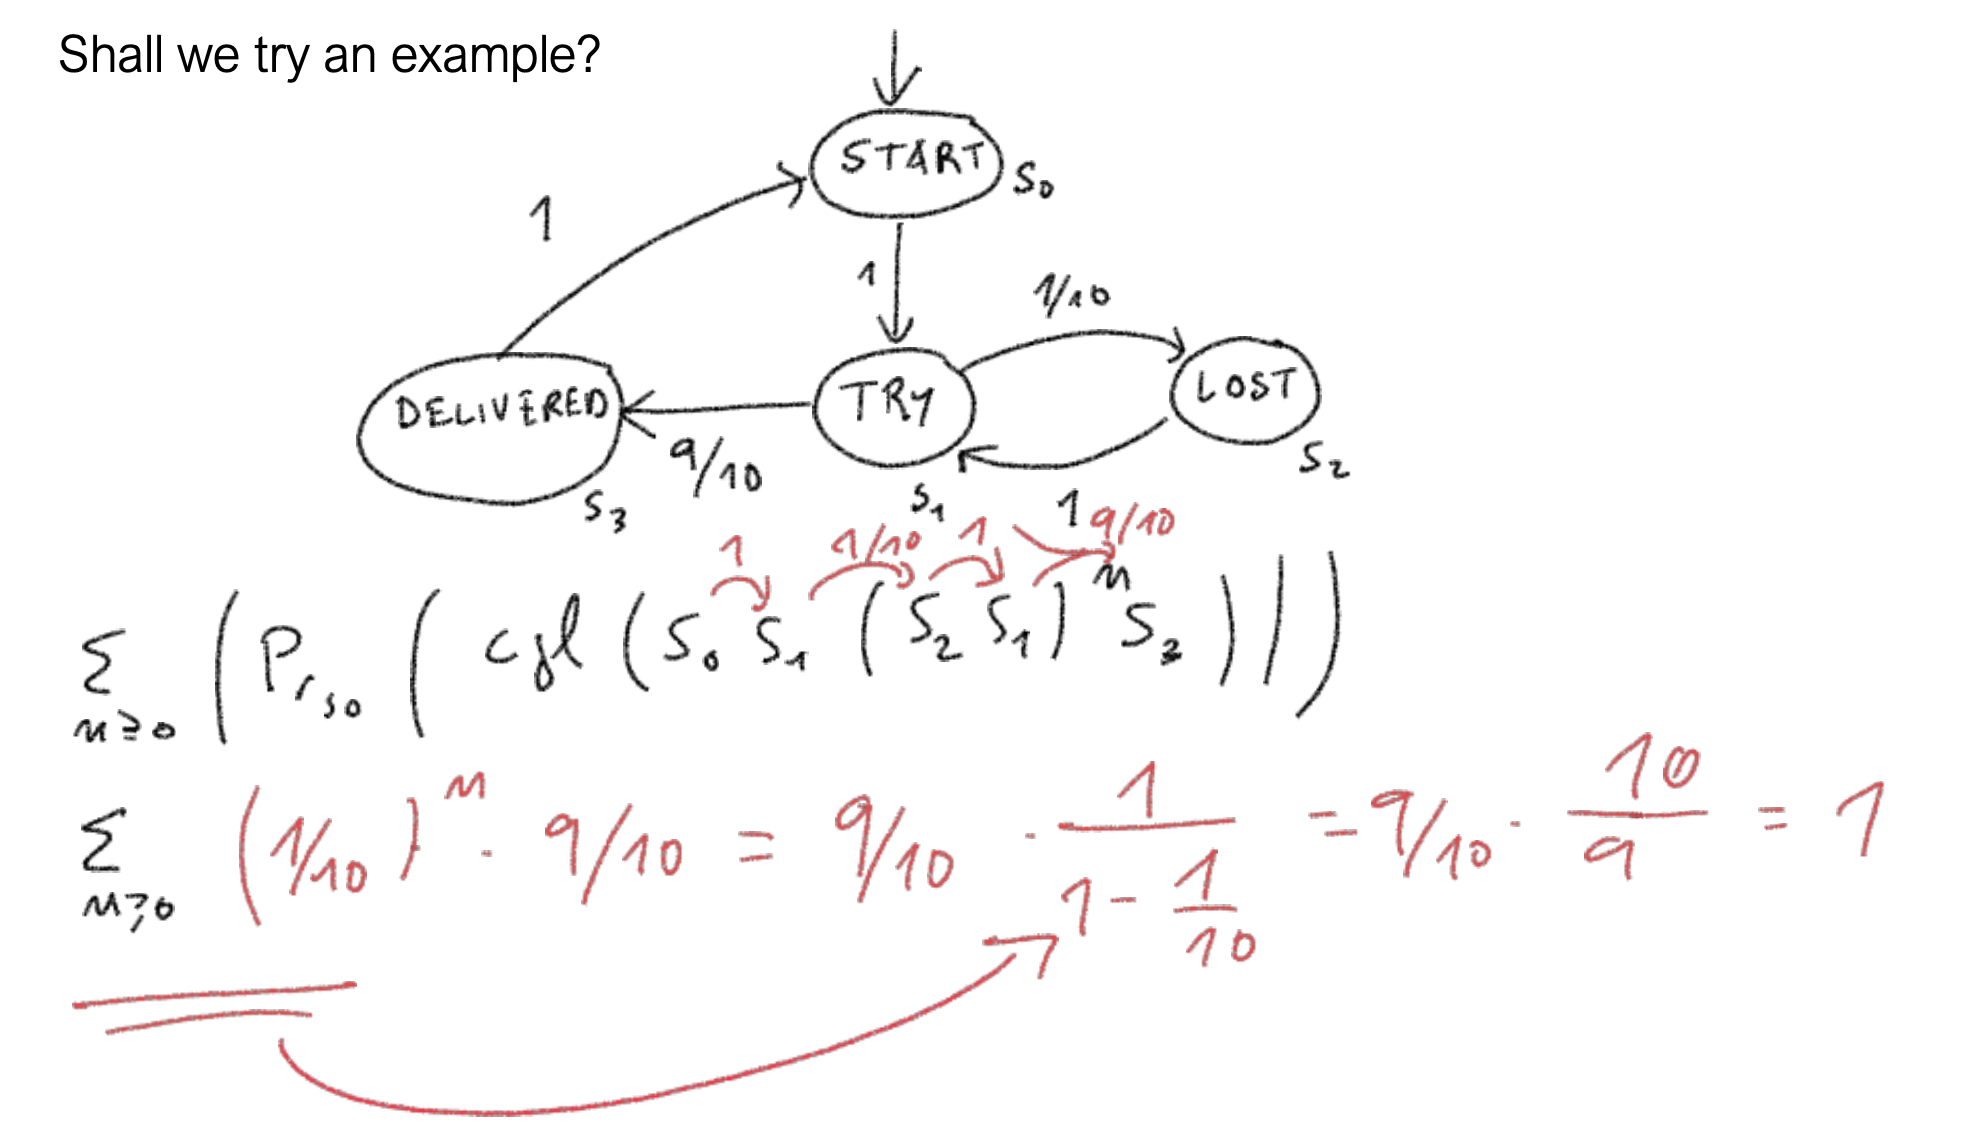 Shall we try an example?
START S0
1
1
1/10
DELIVERED
TRY
LOST
9/10
S3
S1
S2
1
1 1/10 1 9/10
Σ n≥0 ( Pr s0 ( cyl ( S0 S1 ( S2 S1 )^n S3 ) ) )
Σ n≥0 (1/10)^n · 9/10 = 9/10 · 1 / (1 - 1/10) = 9/10 · 10/9 = 1